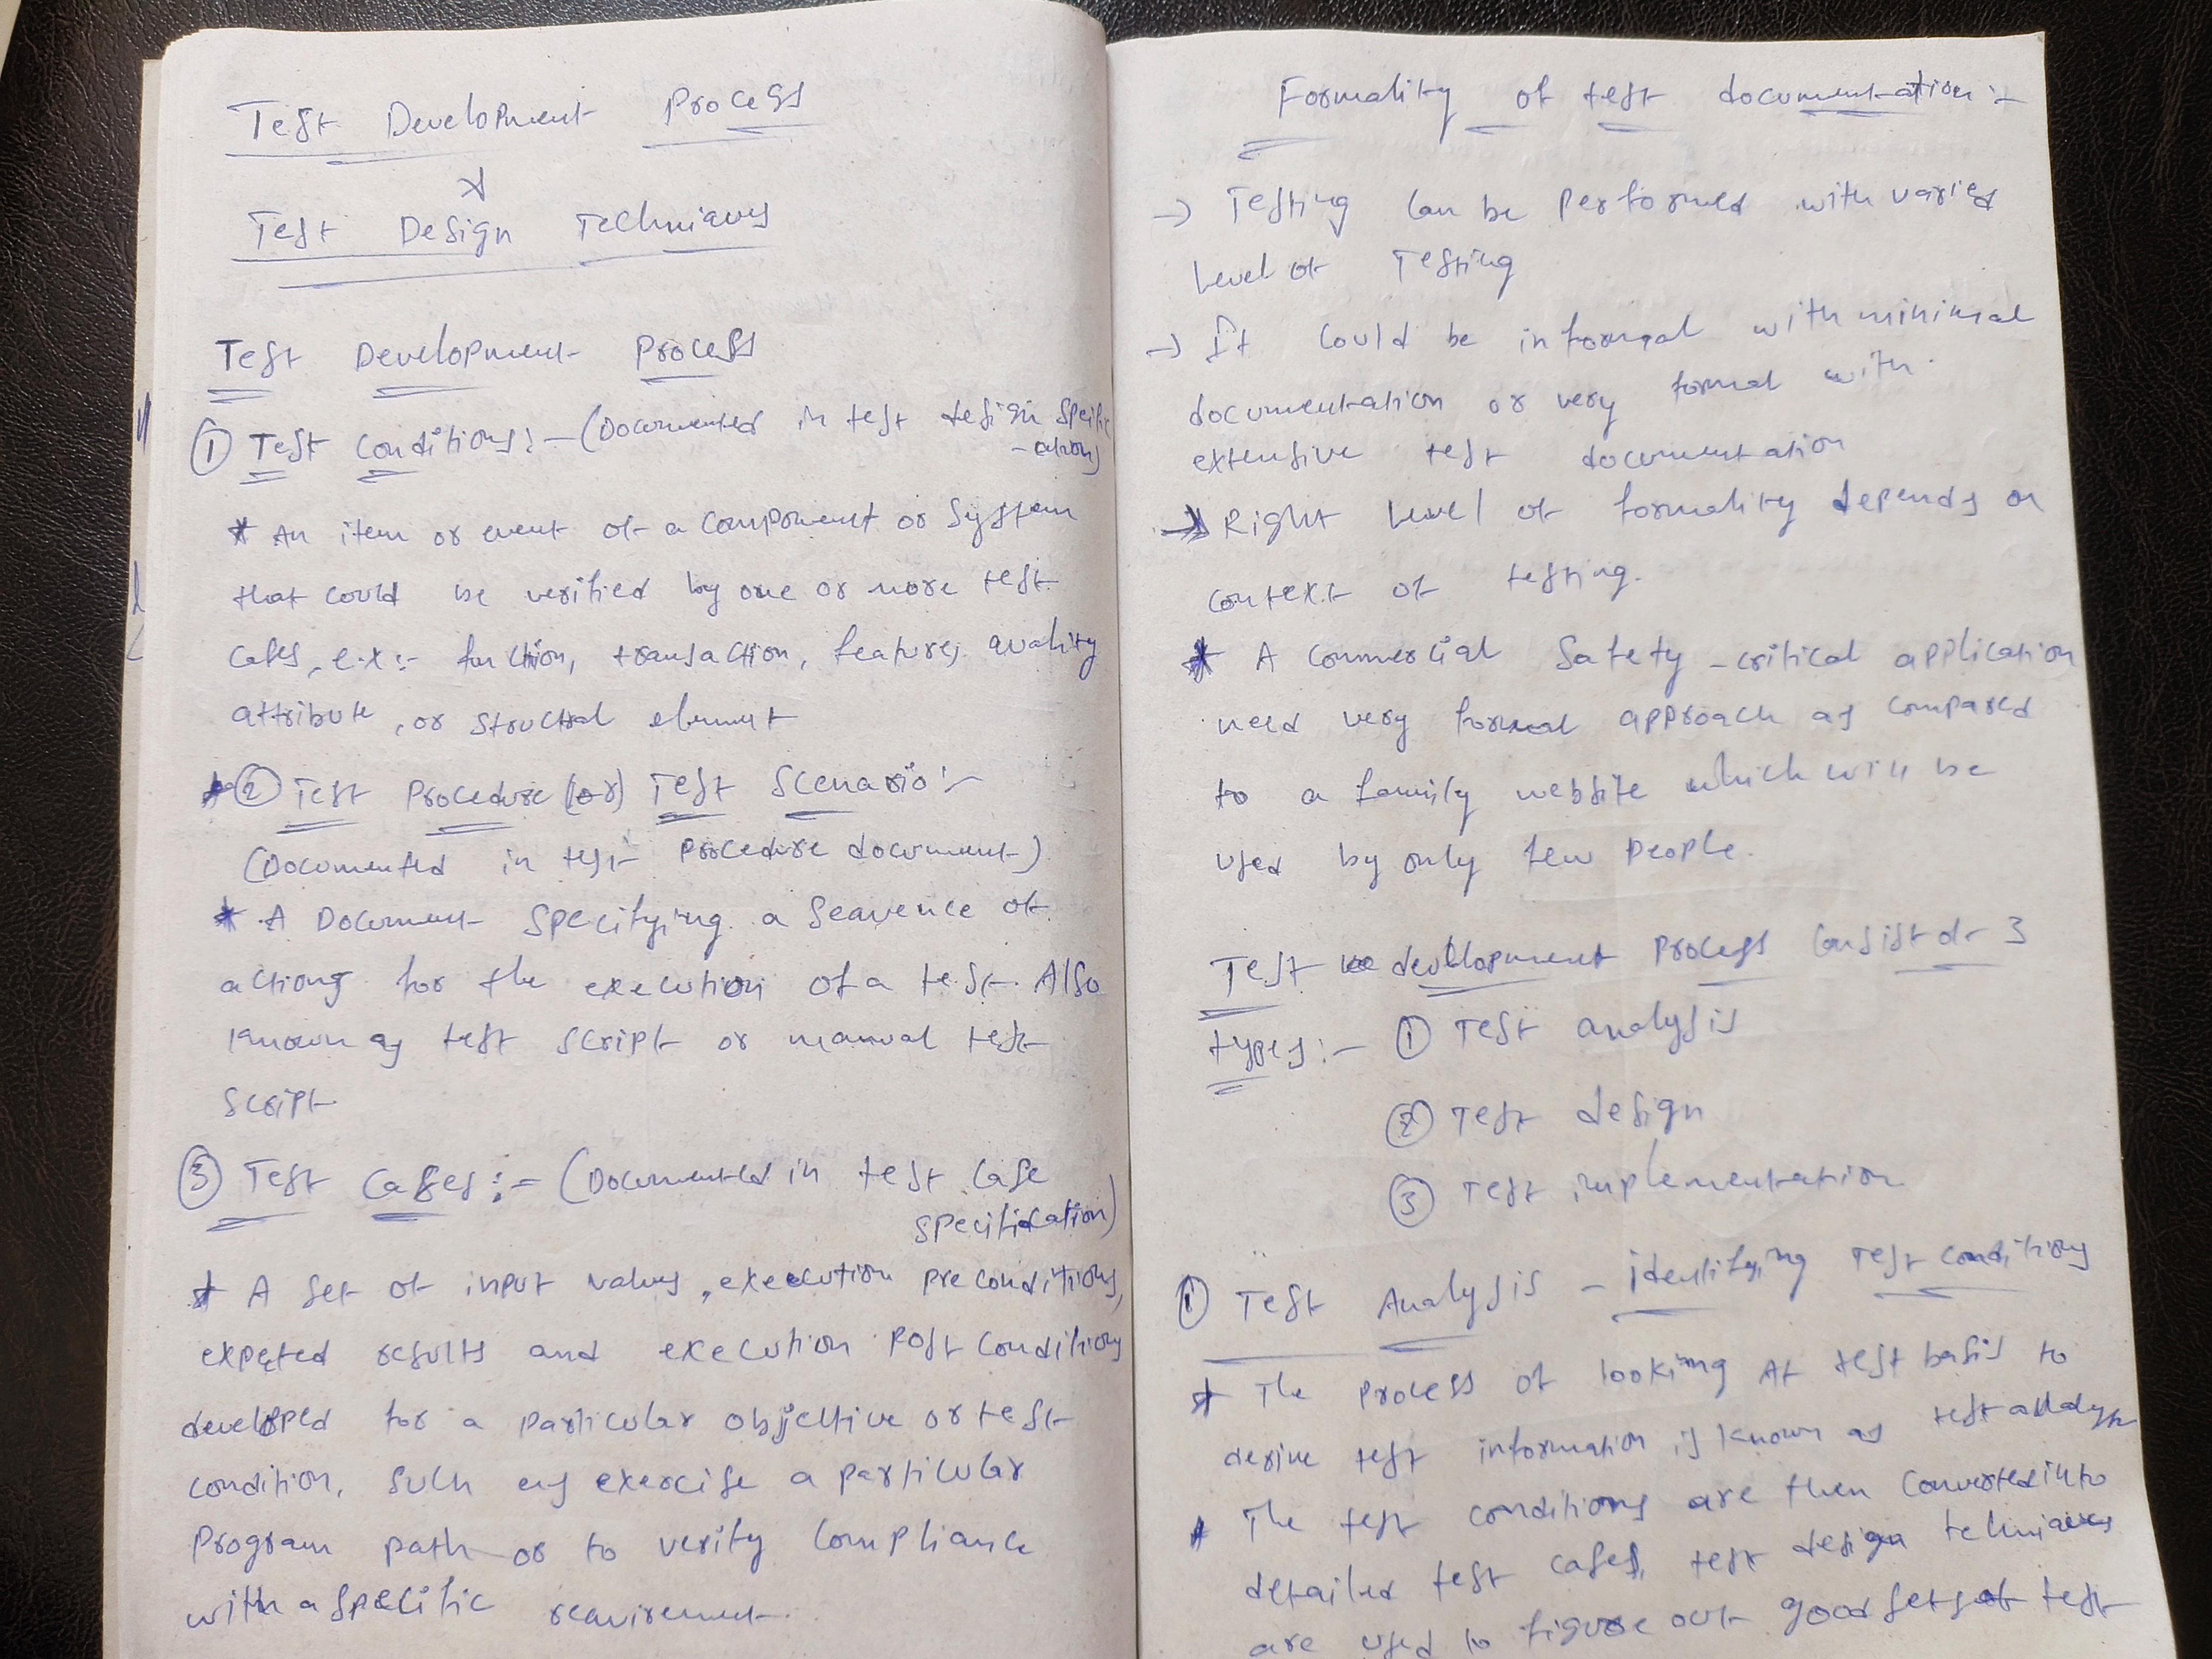 Test Development Process
&
Test Design Techniques
Test Development Process
① Test Conditions:- (Documented in test design specific
-ations)
* An item or event of a component or system
that could be verified by one or more test
cases, e.x:- function, transaction, feature, quality
attribute, or structral element
* ② Test Procedure (or) Test Scenario:-
(Documented in test procedure document)
* A Document specifying a sequence of
actions for the execution of a test. Also
known as test script or manual test
script
③ Test Cases:- (Documented in test case
specification)
* A set of input values, execution preconditions,
expeted results and execution post conditions
developed for a particular objective or test
condition, such as exercise a particular
program path or to verify compliance
with a specific requirement.
Formality of test documentation:-
→ Testing can be performed with varied
level of Testing
→ It could be informal with minimal
documentation or very formal with
extensive test documentation
→ Right level of formality depends on
context of testing.
* A commercial safety-critical application
need very formal approach as compared
to a family website which will be
used by only few people.
Test development process consist of 3
types:- ① Test analysis
② Test design
③ Test implementation
① Test Analysis - identifying test conditions
* The process of looking At test basis to
derive test information is known as test analysis
* The test conditions are then converted into
detailed test cases, test design techniques
are used to figure out good sets of test